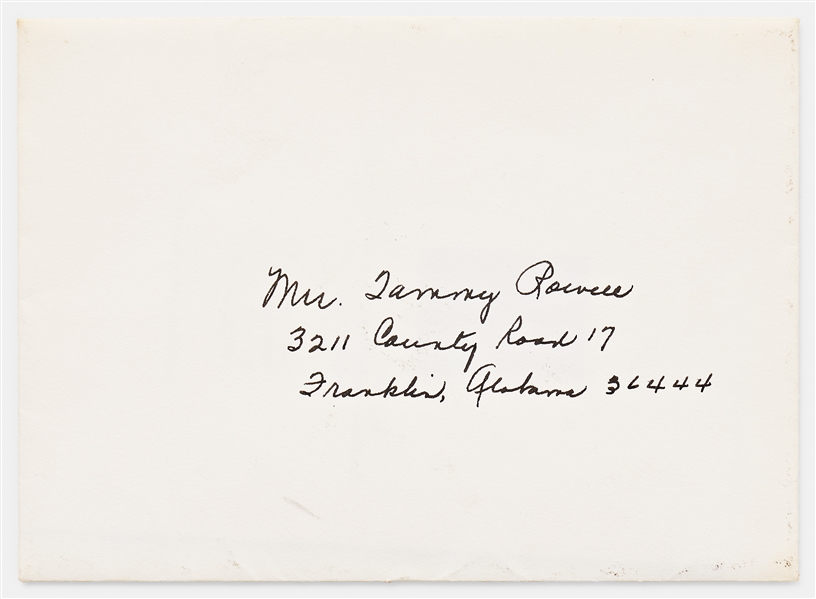 Mr. Tammy Rowell
3211 County Road 17
Franklin, Alabama 36444